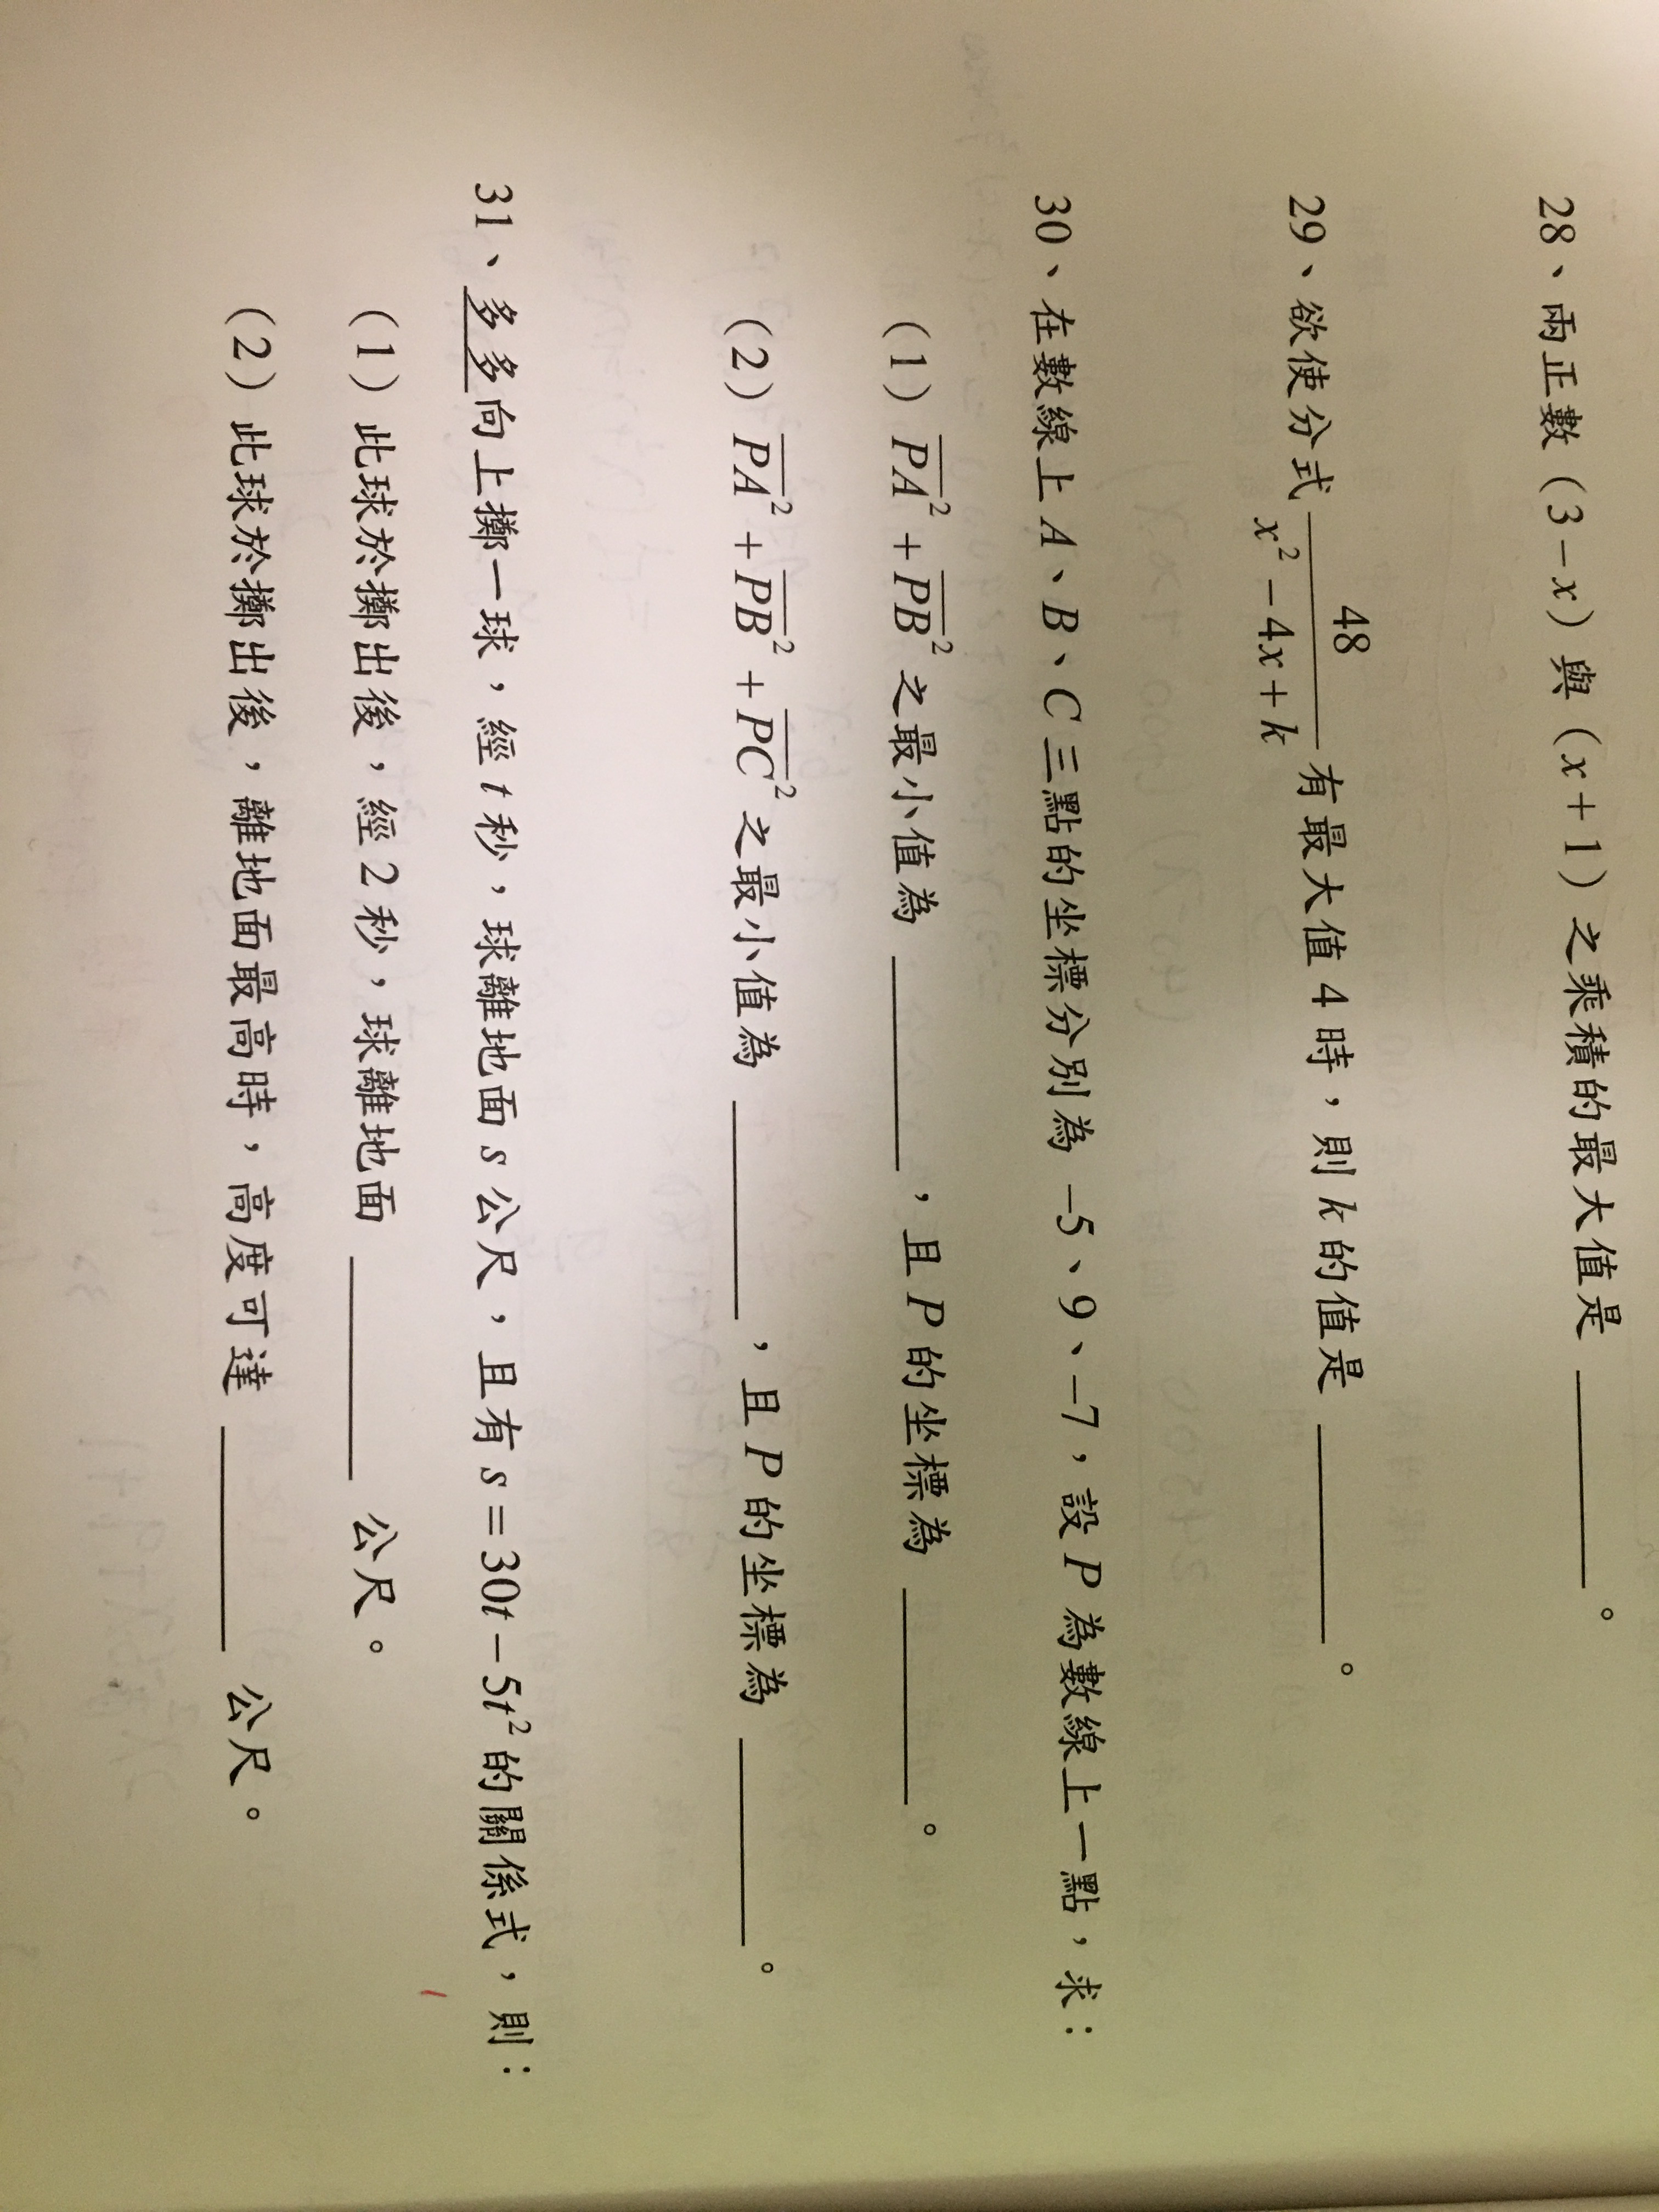 28、兩正數(3-x)與(x+1)之乘積的最大值是 ______。
29、欲使分式 48/(x²-4x+k) 有最大值 4 時,則 k 的值是 ______。
30、在數線上 A、B、C 三點的坐標分別為 -5、9、-7,設 P 為數線上一點,求:
(1) P̅A̅²+P̅B̅² 之最小值為 ______,且 P 的坐標為 ______。
(2) P̅A̅²+P̅B̅²+P̅C̅² 之最小值為 ______,且 P 的坐標為 ______。
31、多多向上擲一球,經 t 秒,球離地面 s 公尺,且有 s=30t-5t² 的關係式,則:
(1) 此球於擲出後,經 2 秒,球離地面 ______ 公尺。
(2) 此球於擲出後,離地面最高時,高度可達 ______ 公尺。